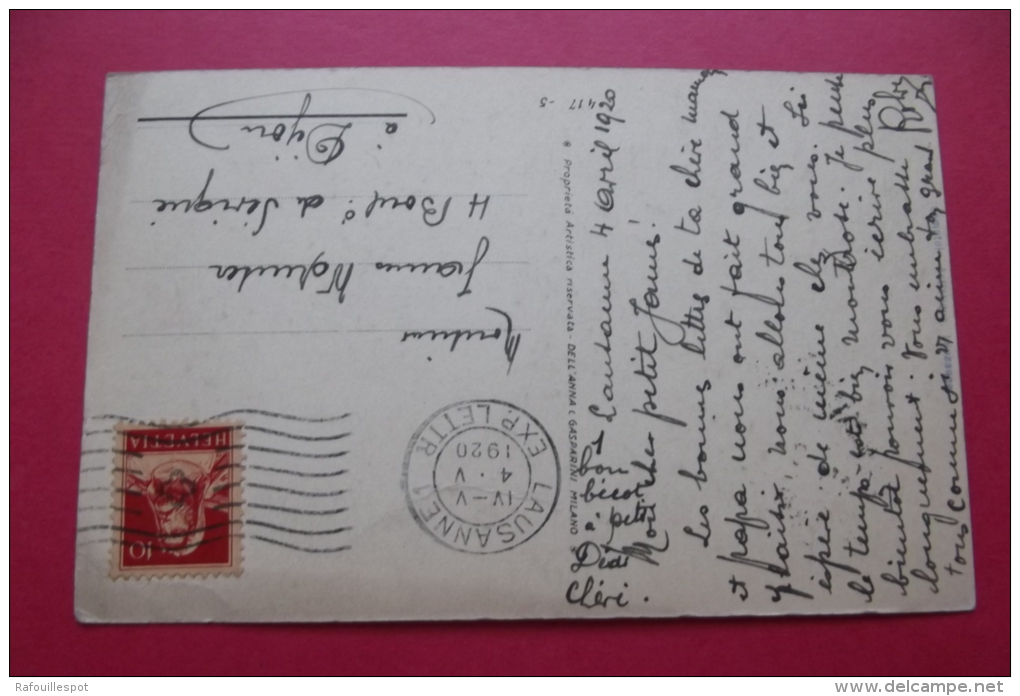 Lausanne 4 Avril 1920
Mon cher petit Janus!
Les bonnes lettres de ta chère maman
et papa nous ont fait grand
plaisir nous allons tous bien et
espère de même chez vous. Ici
le temps est bien monotone. Je
bientôt pouvoir vous écrire plus
longuement. Vous embrasse
tous comme je vous aime ton grand
bon
bécot
petit
Dédé
Chéri.
417 - 5
Proprietà Artistica riservata - DELL'ANNA & GASPARINI, MILANO
Monsieur
H Boul. de Sévigné
à Dijon
LAUSANNE 1
IV-V
4. V
1920
EXP. LETTR.
HELVETIA
10
Rafouillespot
www.delcampe.net